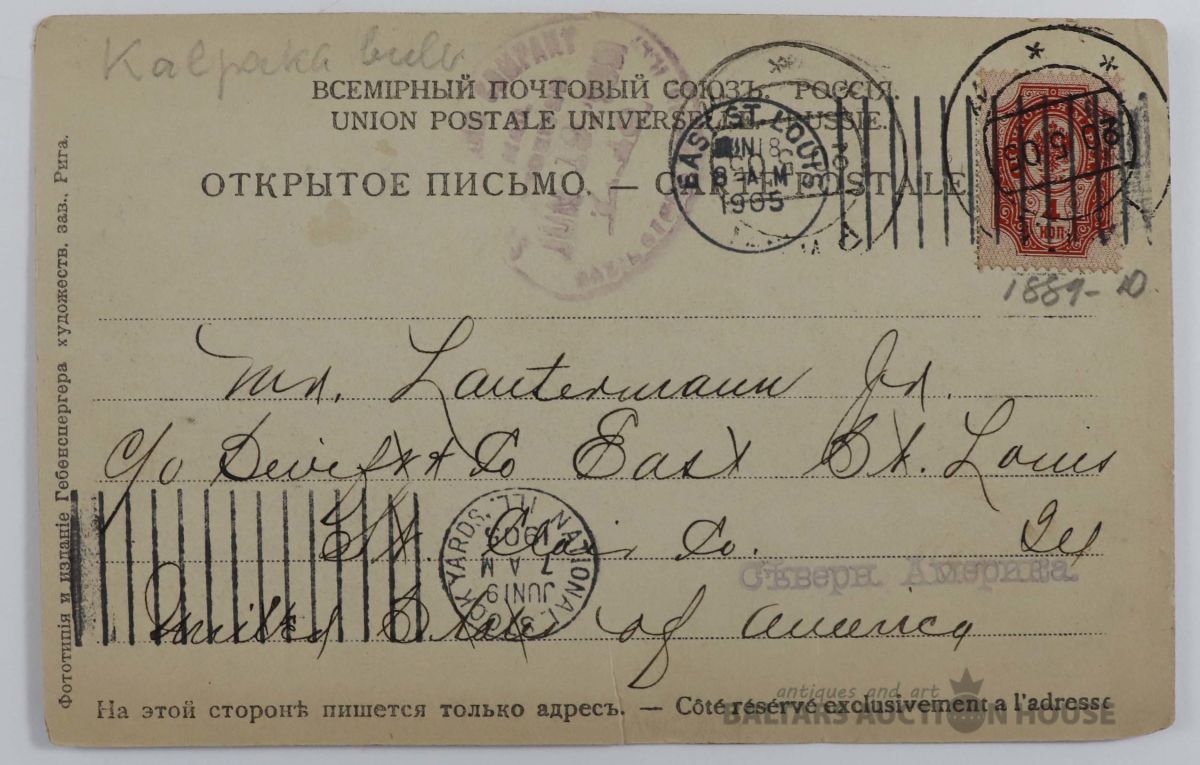 Kalpaka bulv
ВСЕМІРНЫЙ ПОЧТОВЫЙ СОЮЗЪ. РОССІЯ.
UNION POSTALE UNIVERSELLE. RUSSIE.
ОТКРЫТОЕ ПИСЬМО. — CARTE POSTALE
EAST ST. LOUIS
JUN 18
8 AM
1905
1 КОП
1889-10
Mr. Lautermann Jr.
c/o Swift & Co East St. Louis
St. Clair Co. Ill
Сѣверн Америка
United States of America
NATIONAL STOCK YARDS. ILL.
JUN 19
7 AM
1905
На этой сторонѣ пишется только адресъ. — Côté réservé exclusivement a l'adresse
Фототипія и изданіе Гебенспергера художеств. зав., Рига.
antiques and art
BALTARS AUCTION HOUSE